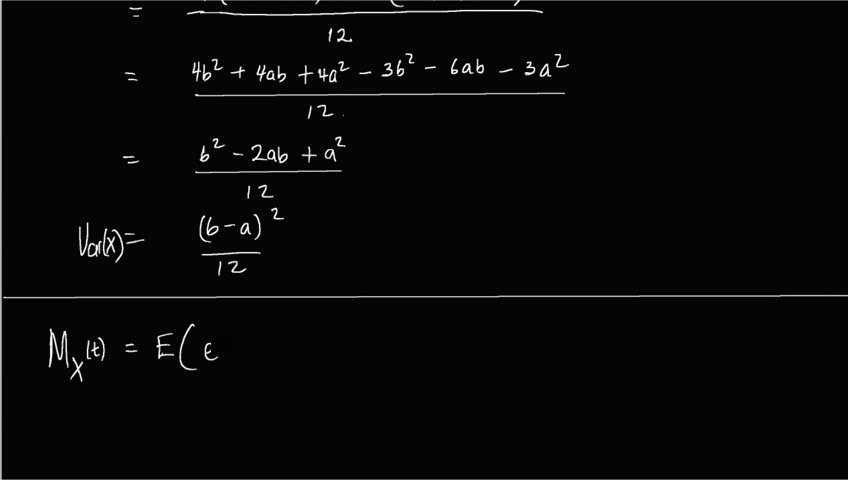 =
12
= 4b² + 4ab + 4a² - 3b² - 6ab - 3a²
12.
= b² - 2ab + a²
12
Var(x) = (b-a)²
12
M_X(t) = E( e